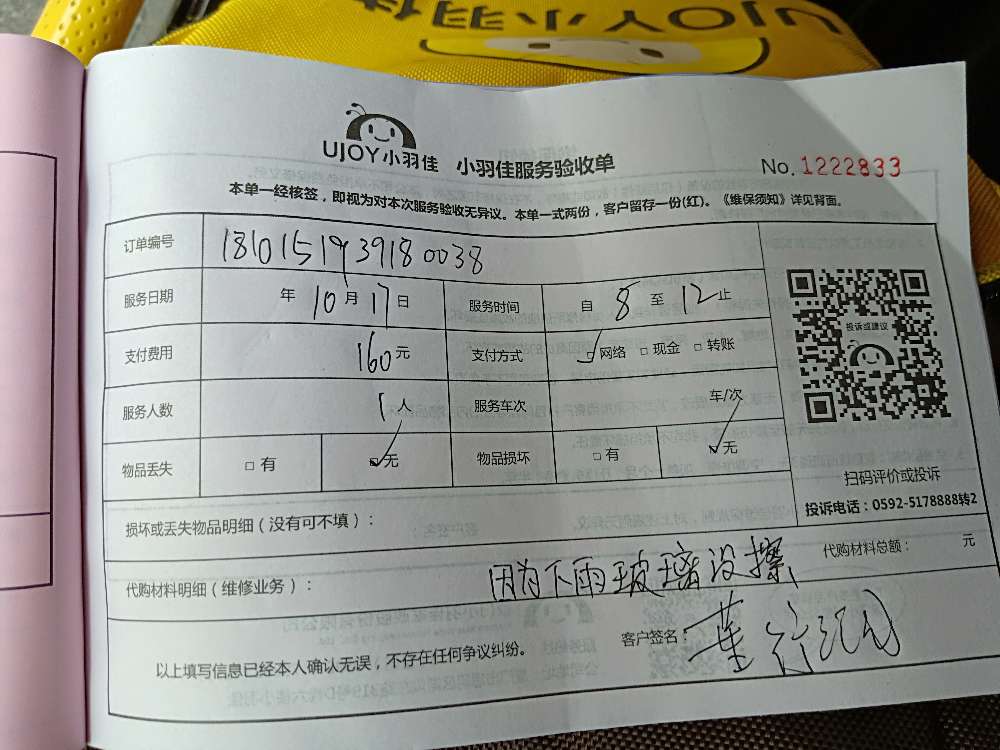 UJOY小羽佳
UJOY小羽佳 小羽佳服务验收单
No. 1222833
本单一经核签，即视为对本次服务验收无异议。本单一式两份，客户留存一份(红)。《维保须知》详见背面。
订单编号 1810151939180038
服务日期 年 10 月 17 日 服务时间 自 8 至 12 止
支付费用 160 元 支付方式 ☑网络 □现金 □转账
服务人数 1 人 服务车次 车/次
物品丢失 □有 ☑无 物品损坏 □有 ☑无
投诉或建议
扫码评价或投诉
投诉电话：0592-5178888转2
损坏或丢失物品明细（没有可不填）：
代购材料明细（维修业务）： 因为下雨玻璃没擦 代购材料总额： 元
以上填写信息已经本人确认无误，不存在任何争议纠纷。 客户签名：